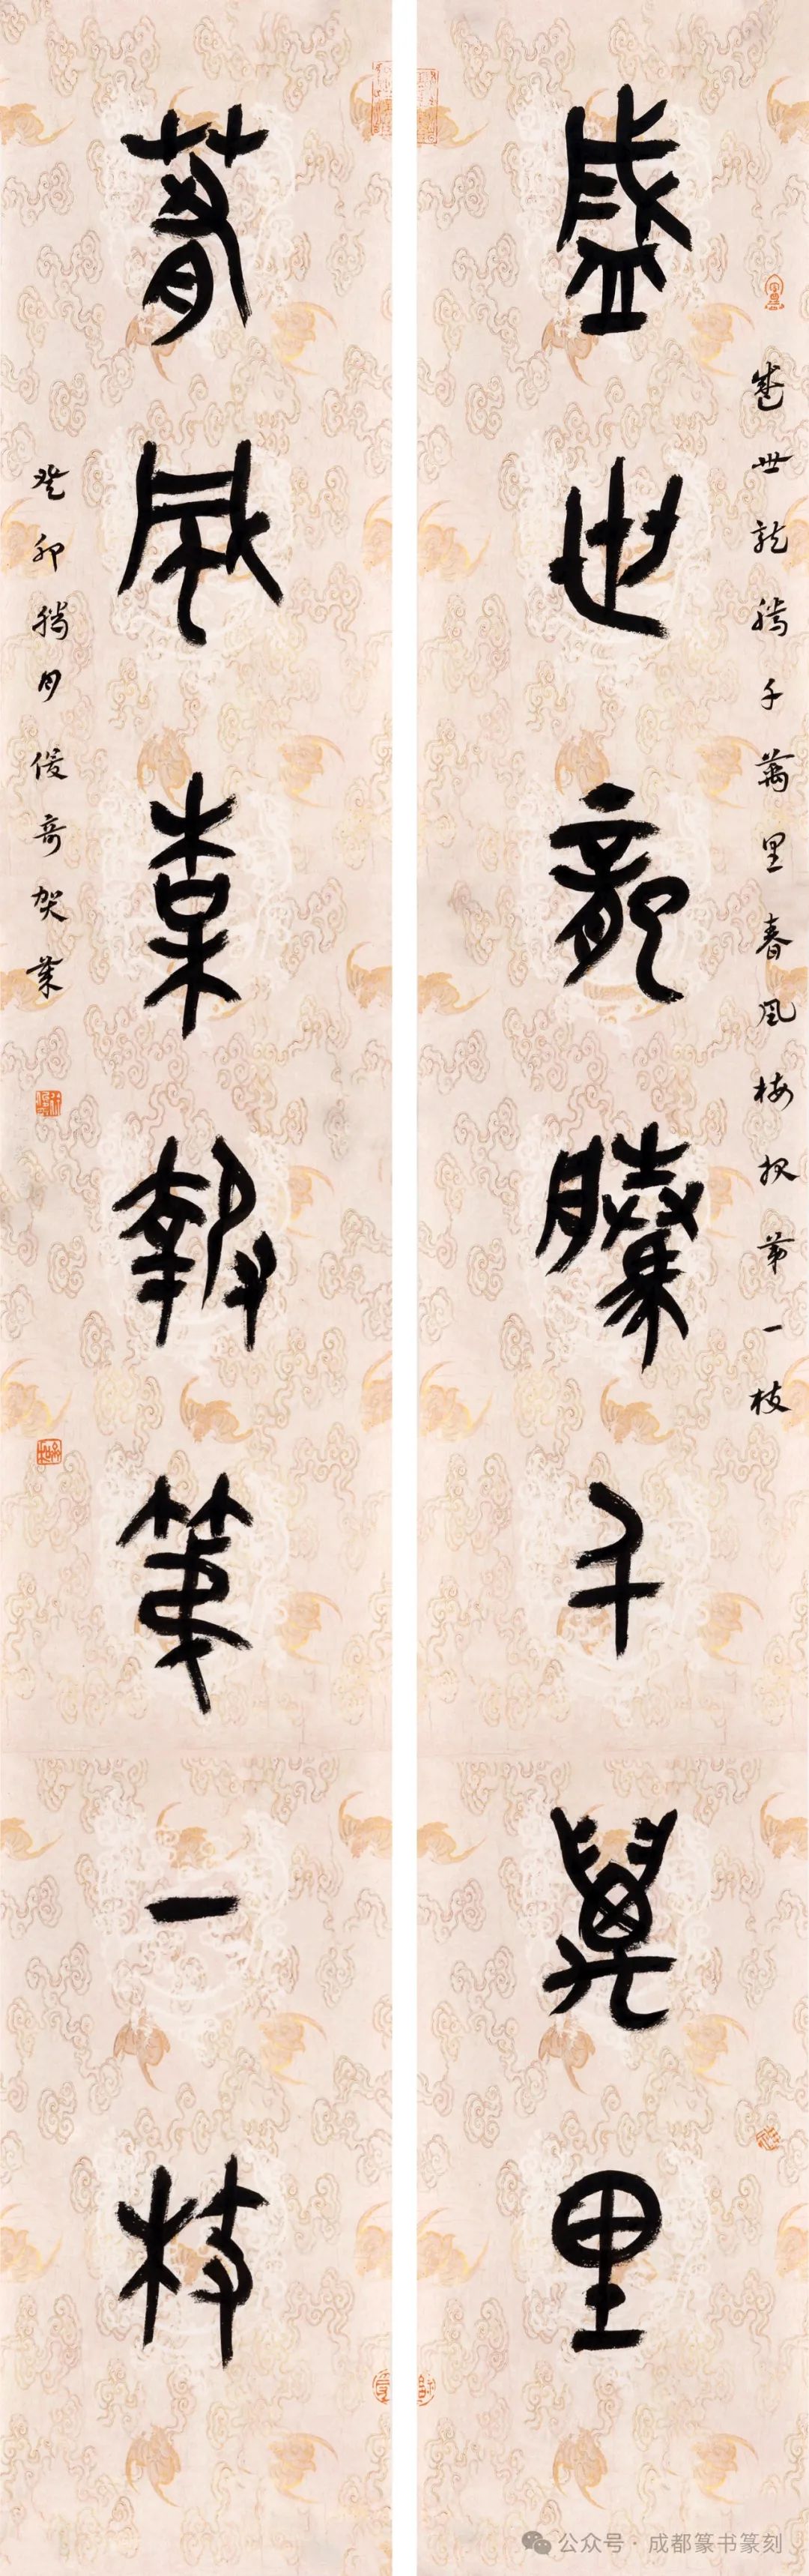 盛世龍騰千萬里
盛世龍騰千萬里春風梅報第一枝
春風某報第一枝
癸卯臘月俊奇賀業
公众号·成都篆书篆刻